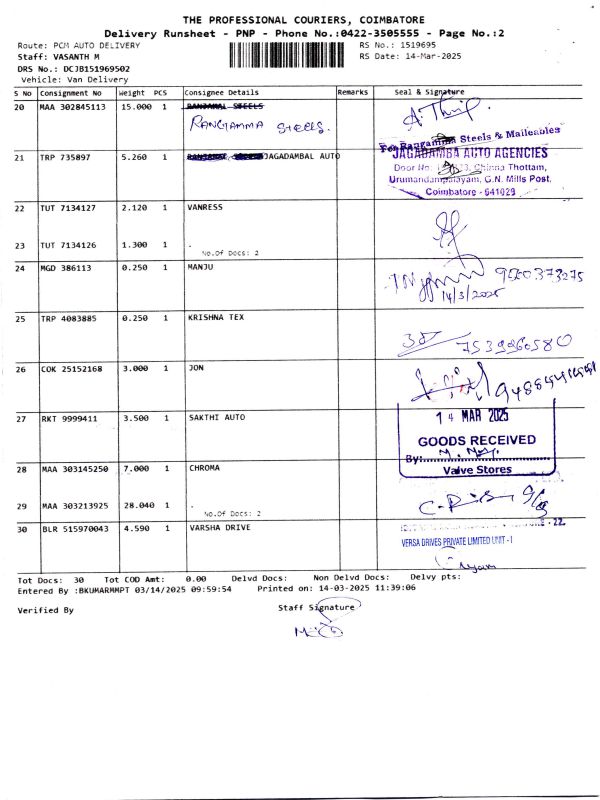 THE PROFESSIONAL COURIERS, COIMBATORE
Delivery Runsheet - PNP - Phone No.:0422-3505555 - Page No.:2
Route: PCM AUTO DELIVERY RS No.: 1519695
Staff: VASANTH M RS Date: 14-Mar-2025
DRS No.: DCJB151969502
Vehicle: Van Delivery
S No Consignment No Weight PCS Consignee Details Remarks Seal & Signature
20 MAA 302845113 15.000 1
RANGAMMA STEELS.
For Rangamma Steels & Maileables
21 TRP 735897 5.260 1 JAGADAMBAL AUTO JAGADAMBA AUTO AGENCIES
Door No: Chinna Thottam,
Urumandampalayam, G.N. Mills Post,
Coimbatore - 641029
22 TUT 7134127 2.120 1 VANRESS
23 TUT 7134126 1.300 1 .
No.Of Docs: 2
24 MGD 386113 0.250 1 MANJU
14/3/2025
25 TRP 4083885 0.250 1 KRISHNA TEX
7539960580
26 COK 25152168 3.000 1 JON
27 RKT 9999411 3.500 1 SAKTHI AUTO 14 MAR 2025
GOODS RECEIVED
By:
Valve Stores
28 MAA 303145250 7.000 1 CHROMA
29 MAA 303213925 28.040 1 .
No.Of Docs: 2
30 BLR 515970043 4.590 1 VARSHA DRIVE
VERSA DRIVES PRIVATE LIMITED UNIT - I
Tot Docs: 30 Tot COD Amt: 0.00 Delvd Docs: Non Delvd Docs: Delvy pts:
Entered By :BKUMARMMPT 03/14/2025 09:59:54 Printed on: 14-03-2025 11:39:06
Verified By Staff Signature